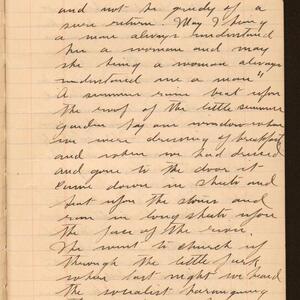 and not be greedy of a
sure return. May I being
a man always understand
her a woman and may
she being a woman always
understand me a man"
A summer rain beat upon
the roof of the little summer
garden by our window when
we were dressing for breakfast
and when we had dressed
and gone to the door it
came down in sheets and
beat upon the stones and
ran in long sheets upon
the face of the river.
We went to church up
through the little park
where last night we heard
the socialist haranguing